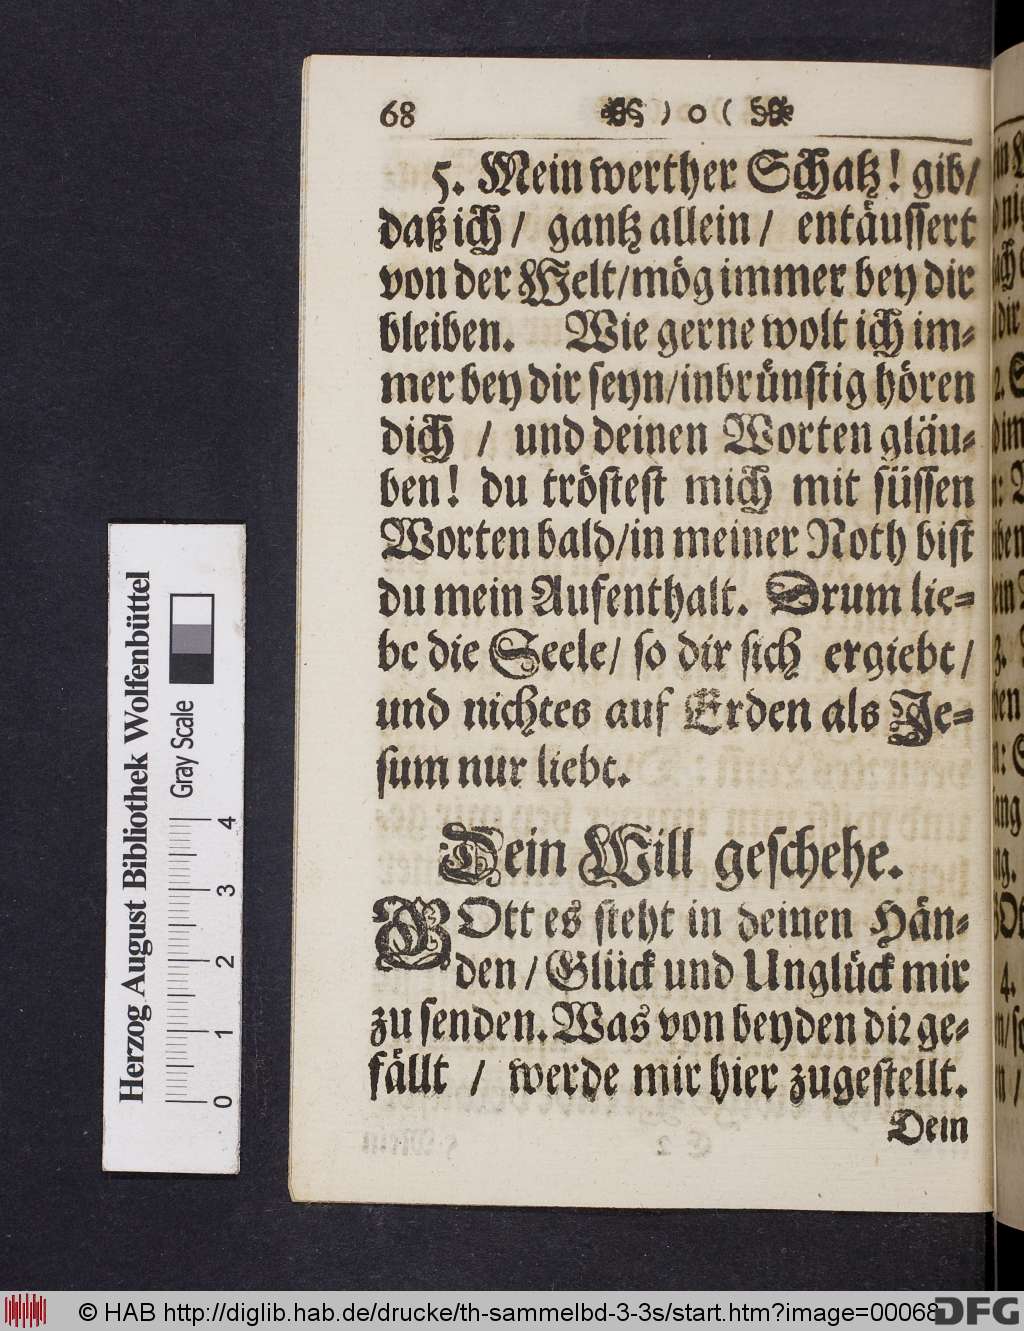 68 ) o (
5. Mein werther Schatz! gib/
daß ich / gantz allein / entäussert
von der Welt/mög immer bey dir
bleiben. Wie gerne wolt ich im-
mer bey dir seyn/inbrünstig hören
dich / und deinen Worten gläu-
ben! du tröstest mich mit süssen
Worten bald/in meiner Noth bist
du mein Aufenthalt. Drum lie-
be die Seele/ so dir sich ergiebt/
und nichtes auf Erden als Je-
sum nur liebt.
Dein Will geschehe.
GOtt es steht in deinen Hän-
den / Glück und Unglück mir
zu senden. Was von beyden dir ge-
fällt / werde mir hier zugestellt.
Dein
Herzog August Bibliothek Wolfenbüttel
Gray Scale
0 1 2 3 4
© HAB http://diglib.hab.de/drucke/th-sammelbd-3-3s/start.htm?image=00068
DFG